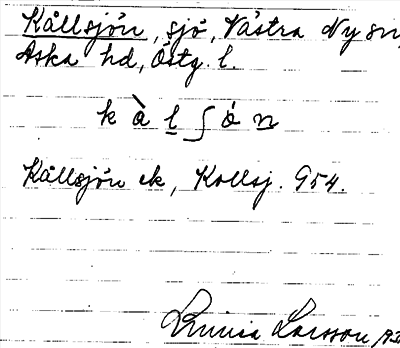 Kållsjön, sjö, Västra Ny sn,
Aska hd, Östg. l.
k å̀ l ʃ ǿ n
Kållsjön ek, Kollsj. 954.
Linnéa Larsson 193